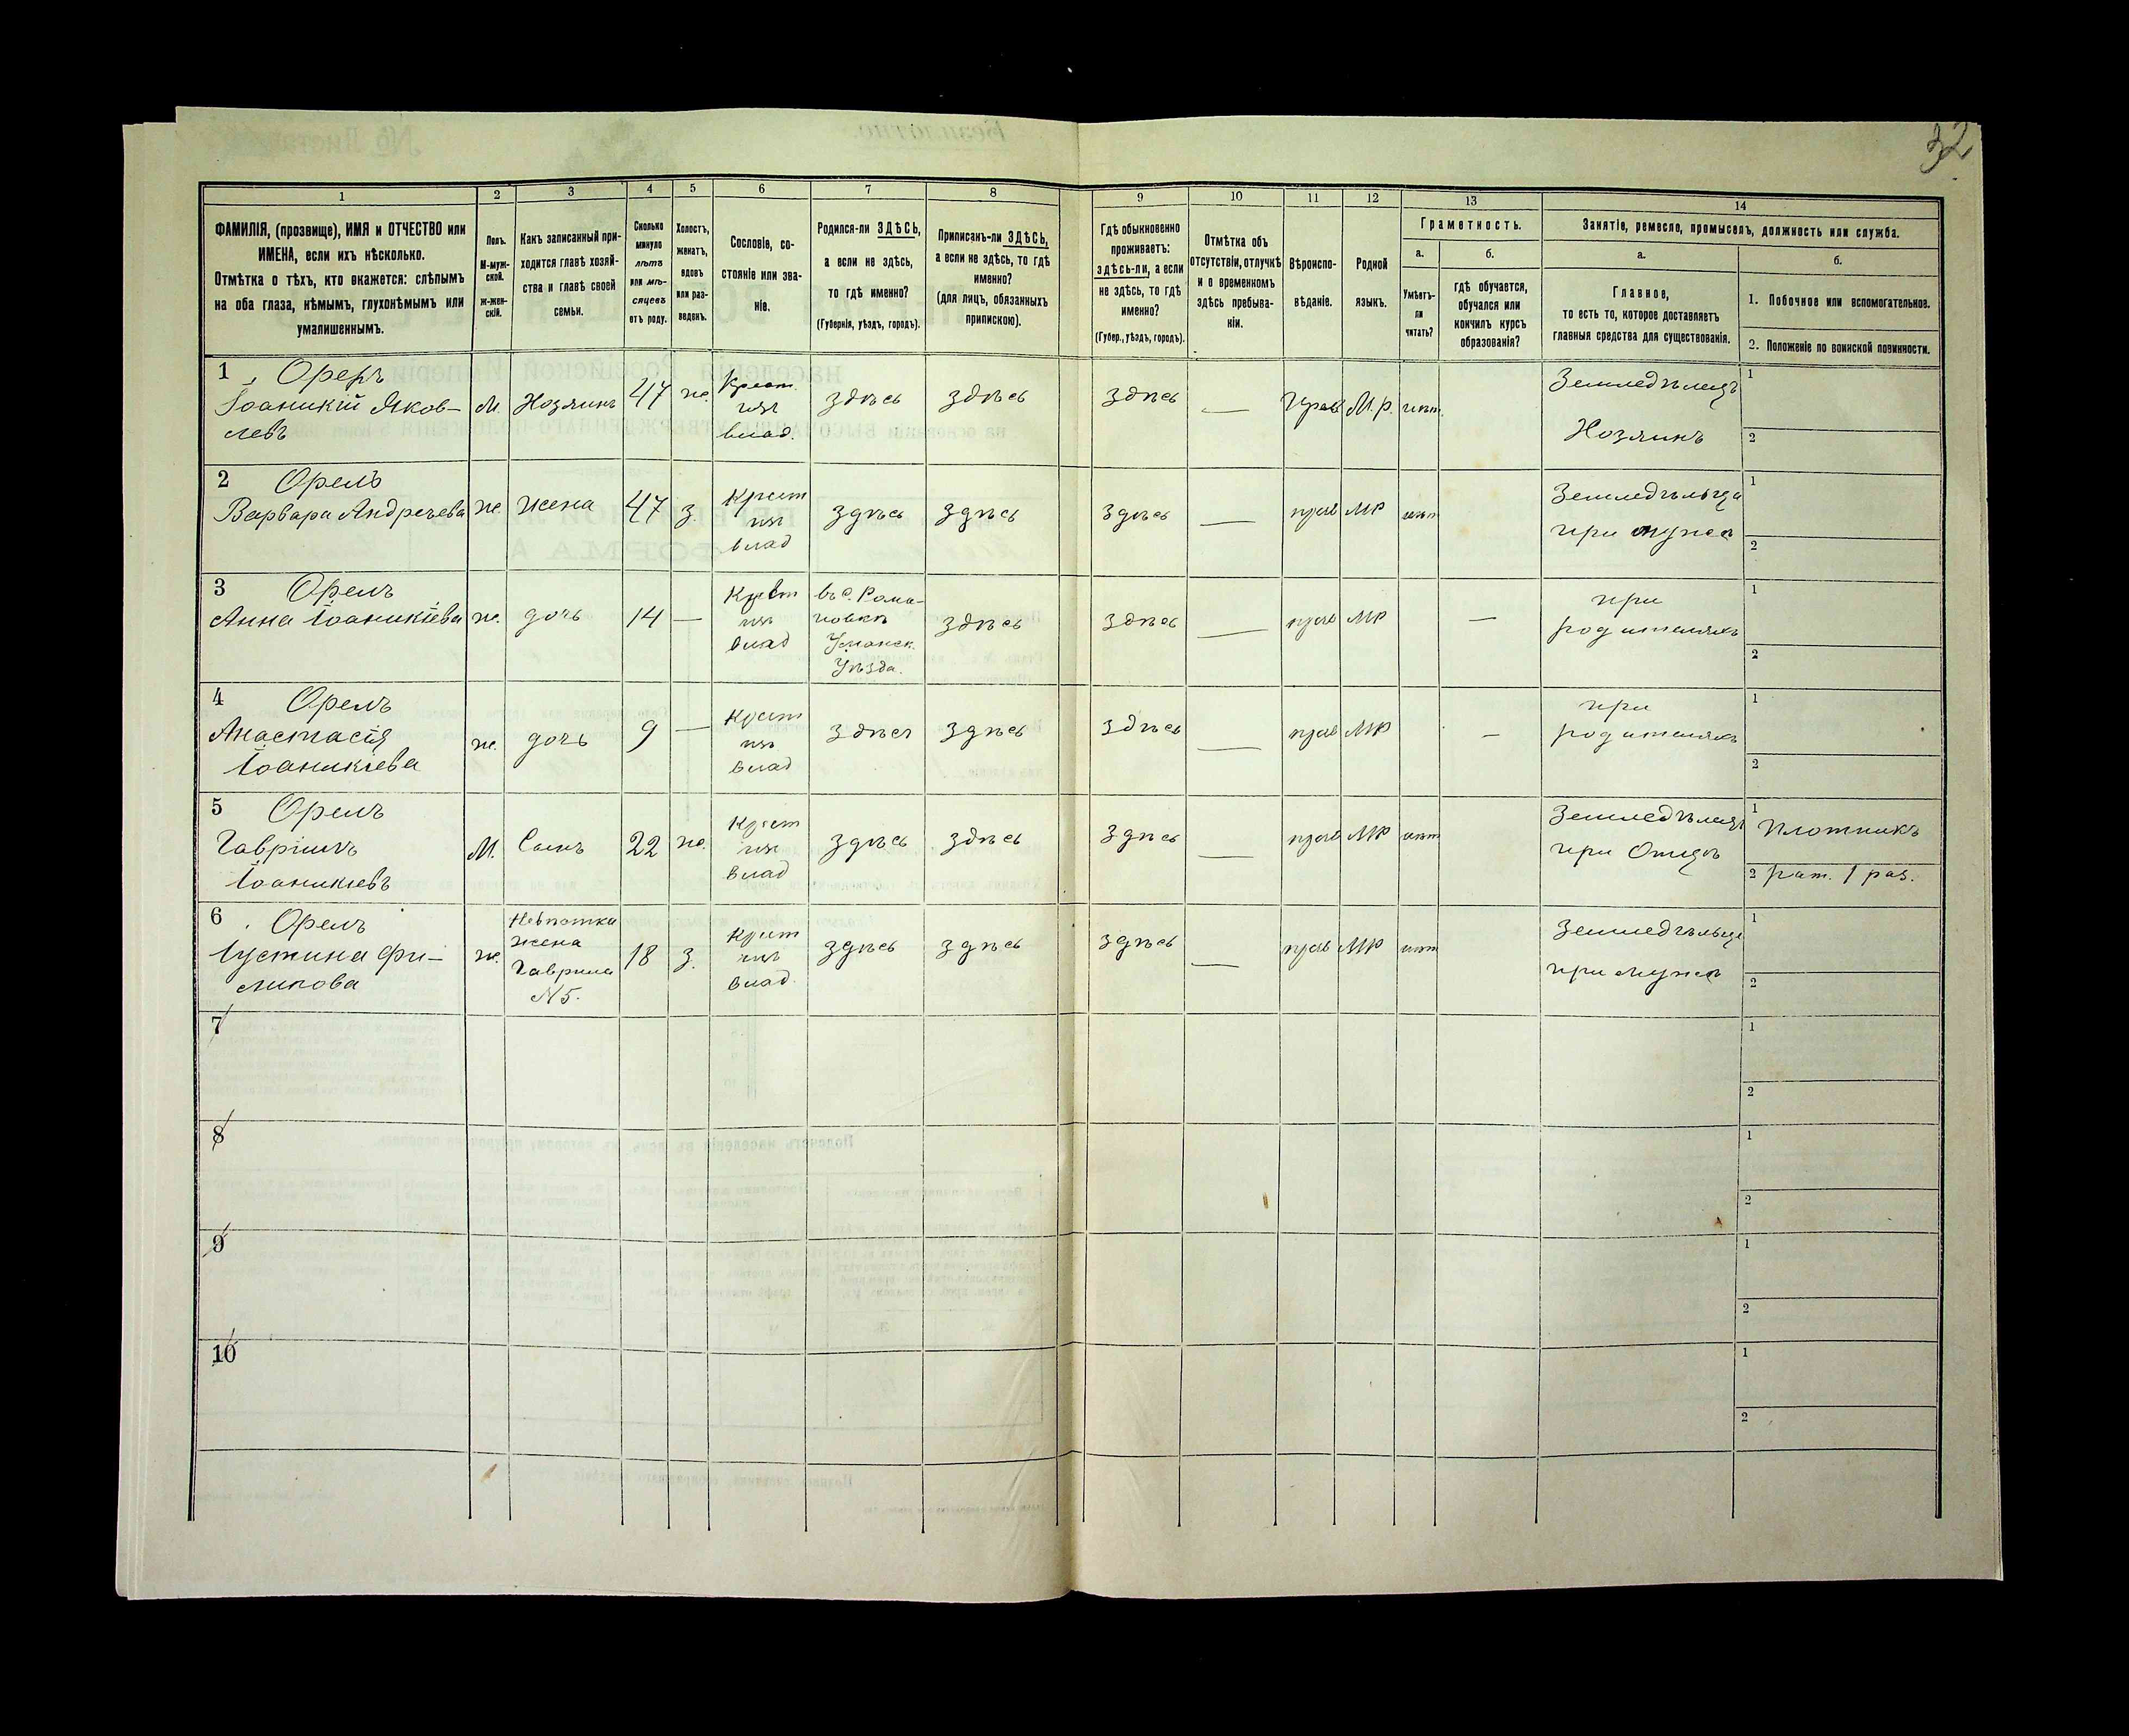 32
1 2 3 4 5 6 7 8 9 10 11 12 13 14
ФАМИЛІЯ, (прозвище), ИМЯ и ОТЧЕСТВО или
ИМЕНА, если ихъ нѣсколько.
Отмѣтка о тѣхъ, кто окажется: слѣпымъ
на оба глаза, нѣмымъ, глухонѣмымъ или
умалишеннымъ.
Полъ.
М-муж-
ской.
ж-жен-
скій.
Какъ записанный при-
ходится главѣ хозяй-
ства и главѣ своей
семьи.
Сколько
минуло
лѣтъ
или мѣ-
сяцевъ
отъ роду.
Холостъ,
женатъ,
вдовъ
или раз-
веденъ.
Сословіе, со-
стояніе или зва-
ніе.
Родился-ли ЗДѢСЬ,
а если не здѣсь,
то гдѣ именно?
(Губернія, уѣздъ, городъ).
Приписанъ-ли ЗДѢСЬ,
а если не здѣсь, то гдѣ
именно?
(для лицъ, обязанныхъ
припискою).
Гдѣ обыкновенно
проживаетъ:
здѣсь-ли, а если
не здѣсь, то гдѣ
именно?
(Губер., уѣздъ, городъ).
Отмѣтка объ
отсутствіи, отлучкѣ
и о временномъ
здѣсь пребыва-
ніи.
Вѣроиспо-
вѣданіе.
Родной
языкъ.
Грамотность.
а.
Умѣетъ-
ли
читать?
б.
гдѣ обучается,
обучался или
кончилъ курсъ
образованія?
Занятіе, ремесло, промыселъ, должность или служба.
а.
Главное,
то есть то, которое доставляетъ
главныя средства для существованія.
б.
1. Побочное или вспомогательное.
2. Положеніе по воинской повинности.
1 Орелъ
Іоаникій Яков-
левъ
М. Хозяинъ 47 ж.
Крест.
изъ
влад.
здѣсь здѣсь здѣсь — Прав М.р. нѣт.
Земледѣлецъ
Хозяинъ
1
2
2 Орелъ
Варвара Андреева
ж жена 47 з.
Крест
изъ
влад
здѣсь здѣсь здѣсь — прав МР нѣт
Земледѣльца
при мужѣ
1
2
3 Орелъ
Анна Іоаникіева
ж. дочь 14 —
Крест
изъ
влад
въ с. Рома-
новкѣ
Уманск.
Уѣзда.
здѣсь здѣсь — прав МР —
при
родителяхъ
1
2
4 Орелъ
Анастасія
Іоаникіева
ж. дочь 9 —
Крест
изъ
влад
здѣсь здѣсь здѣсь — прав МР —
при
родителяхъ
1
2
5 Орелъ
Гавріилъ
Іоаникіевъ
М. Сынъ 22 ж.
Крест
изъ
влад
здѣсь здѣсь здѣсь — прав МР нѣт
Земледѣлецъ
при Отцѣ
1 Плотникъ
2 рат. 1 раз.
6 Орелъ
Іустина Фи-
липова
ж.
Невѣстка
жена
Гаврила
N 5.
18 з.
Крест
изъ
влад
здѣсь здѣсь здѣсь — прав МР нѣт
Земледѣльца
при мужѣ
1
2
7
1
2
8
1
2
9
1
2
10
1
2